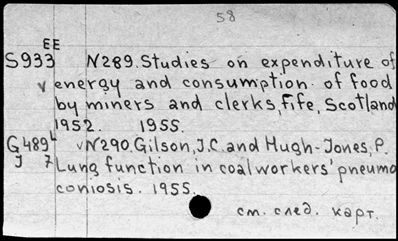 58
EE
S933 N289. Studies on expenditure of
v energy and consumption of food
by miners and clerks, Fife, Scotland
1952. 1955.
G489L v N290. Gilson, J.C. and Hugh-Jones, P.
J 7 Lung function in coalworkers' pneumo
coniosis. 1955.
см. след. карт.